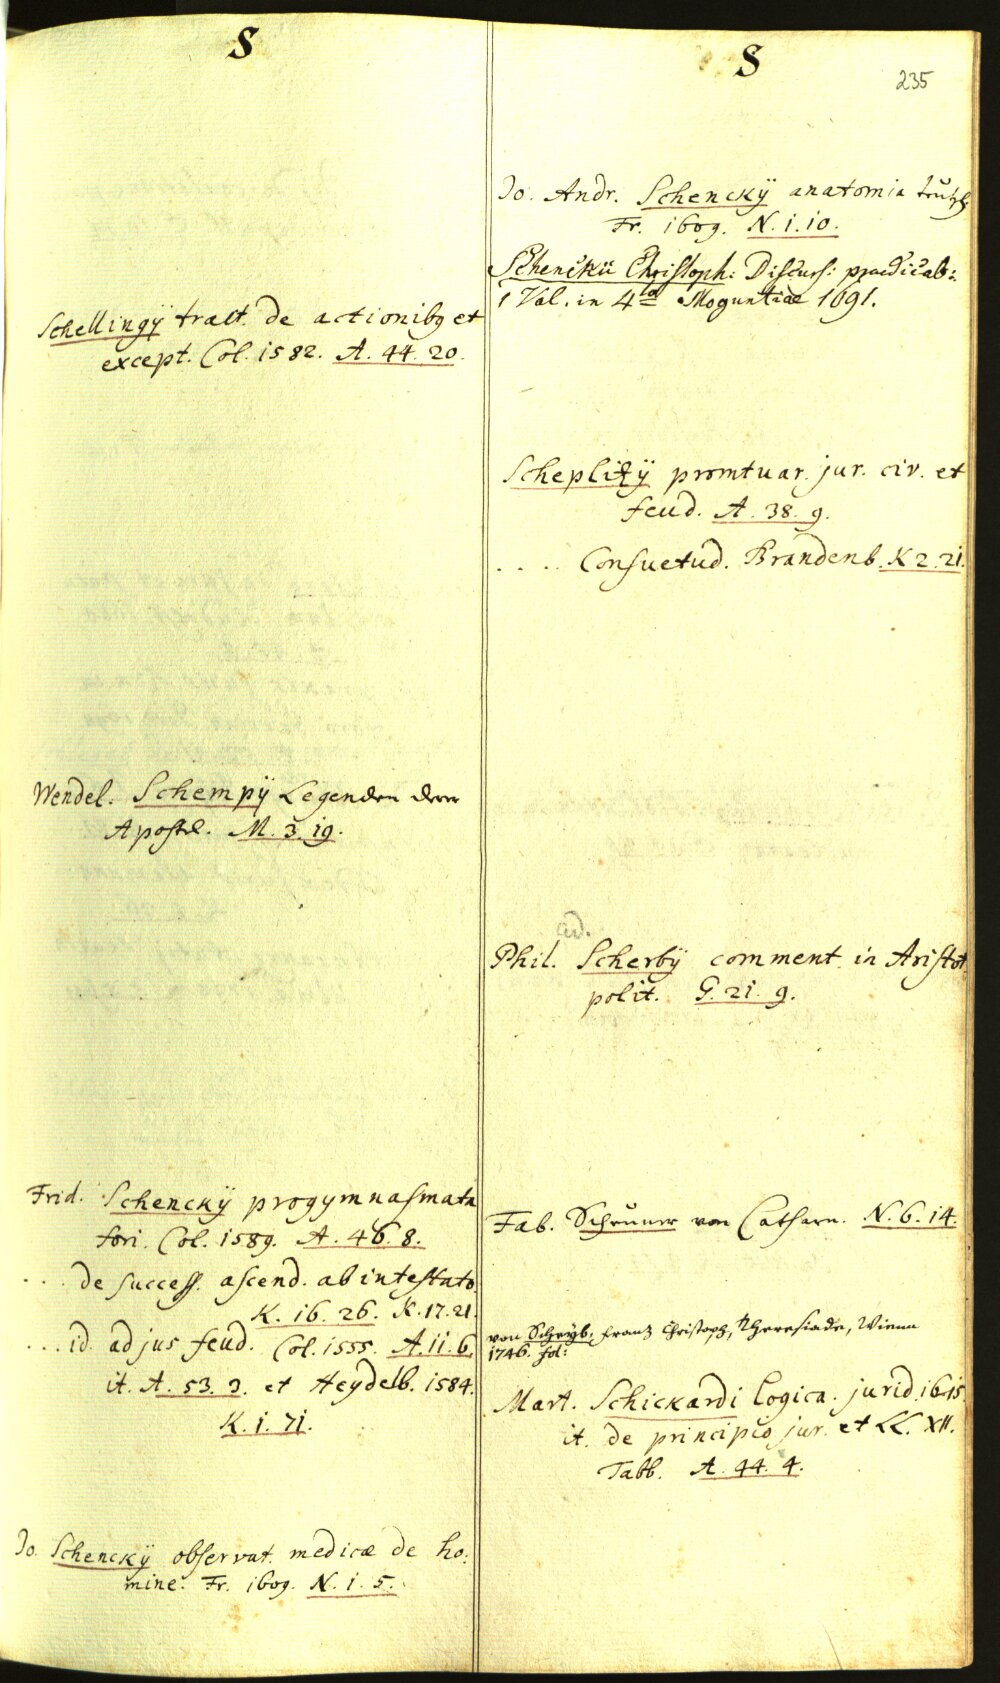 S
Schellingÿ tract. de actionibq et
except. Col. 1582. A. 44. 20.
Wendel. Schempÿ Legenden der
Apostel. M. 3. 19.
Frid. Schenckÿ progymnasmata
fori. Col. 1589. A. 46. 8.
... de success. ascend. ab intestato
K. 16. 26. K. 17. 21.
... id. ad jus feud. Col. 1555. A. 11. 6.
it. A. 53. 3. et Heydelb. 1584.
K. 1. 71.
Jo. Schenckÿ observat. medicæ de ho:
mine. Fr. 1609. N. 1. 5.
S
235
Jo. Andr. Schenckÿ anatomia
Fr. 1609. N. 1. 10.
Schenckii Christoph: Discurs: prædicab:
1 Vol. in 4to Moguntiæ 1691.
Scheplitzÿ promtuar. jur. civ. et
feud. A. 38. 9.
. . . . Consuetud. Brandenb. K 2. 21.
ad.
Phil. Scherbÿ comment. in Aristot.
polit. G. 21. 9.
Fab. von Catharn. N. 6. 14.
von Scheyb, Franz Christoph, Theresiade, Wienn
1746. fol:
Mart. Schickardi Logica. jurid. 1615.
it. de principio jur. et LL. XII.
Tabb. A. 44. 4.